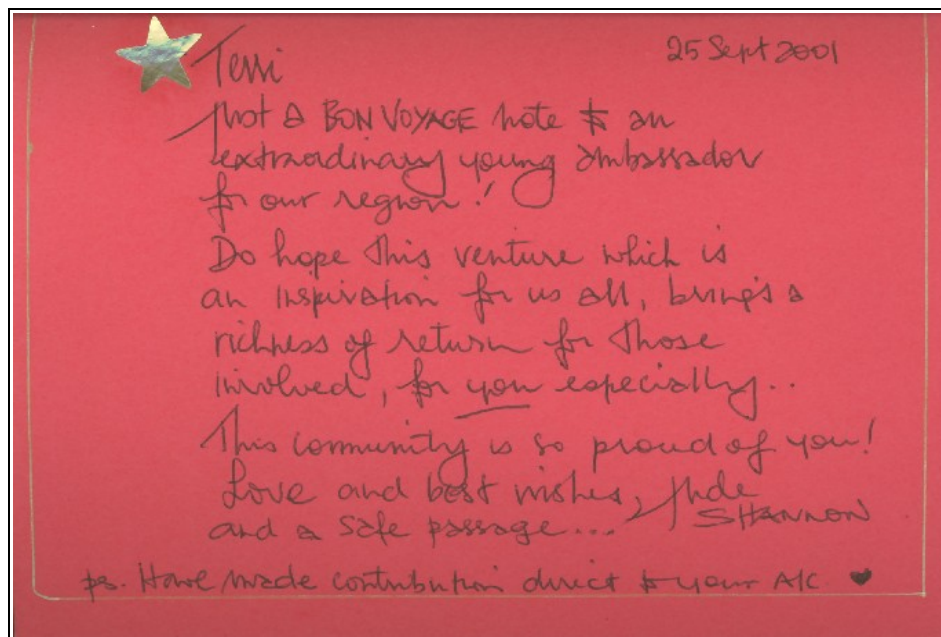 25 Sept 2001
Terri
Just a BON VOYAGE note to an
extraordinary young ambassador
for our region!
Do hope this venture which is
an inspiration for us all, brings a
richness of return for those
involved, for you especially..
This community is so proud of you!
Love and best wishes, Jude
and a safe passage... SHANNON
ps. Have made contribution direct to your A/C ♥